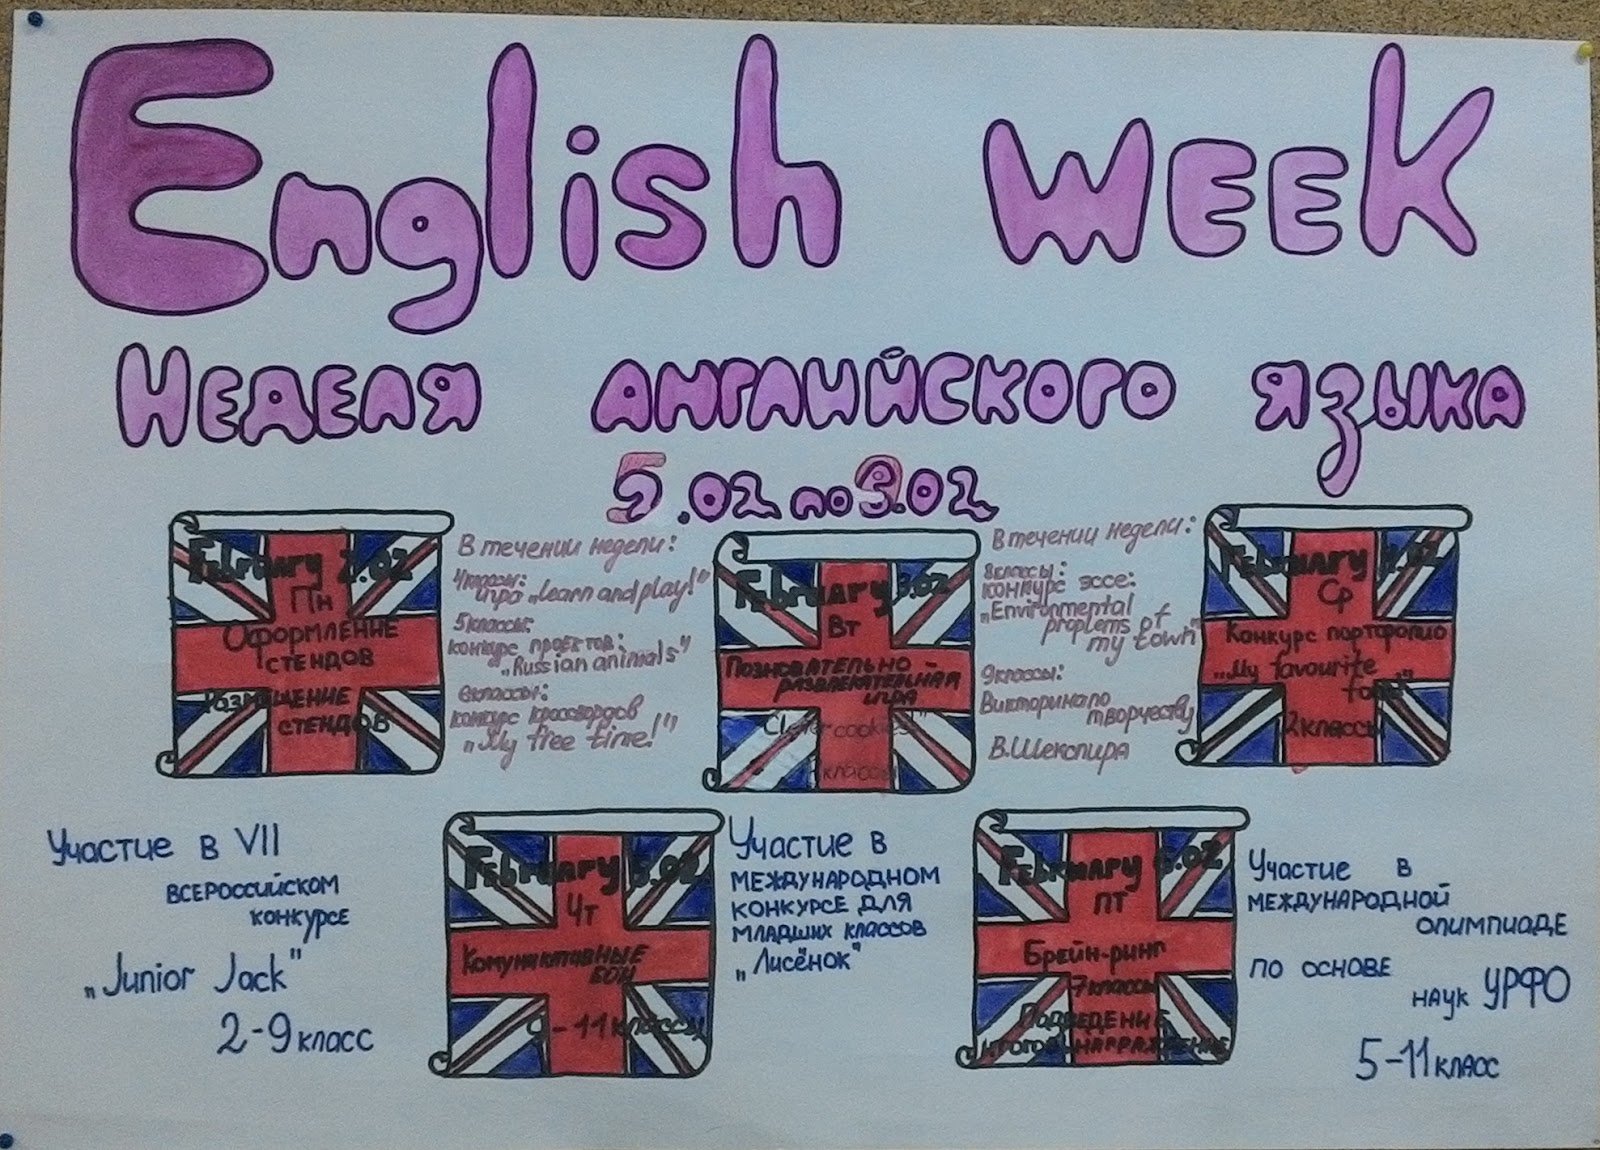 English week
Неделя английского языка
5.02 по 9.02
February 2.02
Пн
Оформление
стендов
Размещение
стендов
В течении недели:
4классы:
игра „Learn and play!"
5классы:
конкурс проектов:
„Russian animals"
6классы:
конкурс кроссвордов
„My free time!"
February 3.02
Вт
Позновательно-
развлекательная
игра
Clever cookies"
классы
В течении недели:
8классы:
конкурс эссе:
„Environmental
proplems of
my town"
9классы:
Викторина по
творчеству
В.Шекспира
February 4.02
Ср
Конкурс портфолио
„My favourite
2классы
Участие в VII
всероссийском
конкурсе
„Junior Jack"
2-9 класс
February 5.02
Чт
Комуникативные
бои
9-11 классы
Участие в
международном
конкурсе для
младших классов
„Лисёнок"
February 6.02
ПТ
Брейн-ринг
7классы
Подведение
итогов. награждение
Участие в
международной
олимпиаде
по основе
наук УРФО
5-11 класс